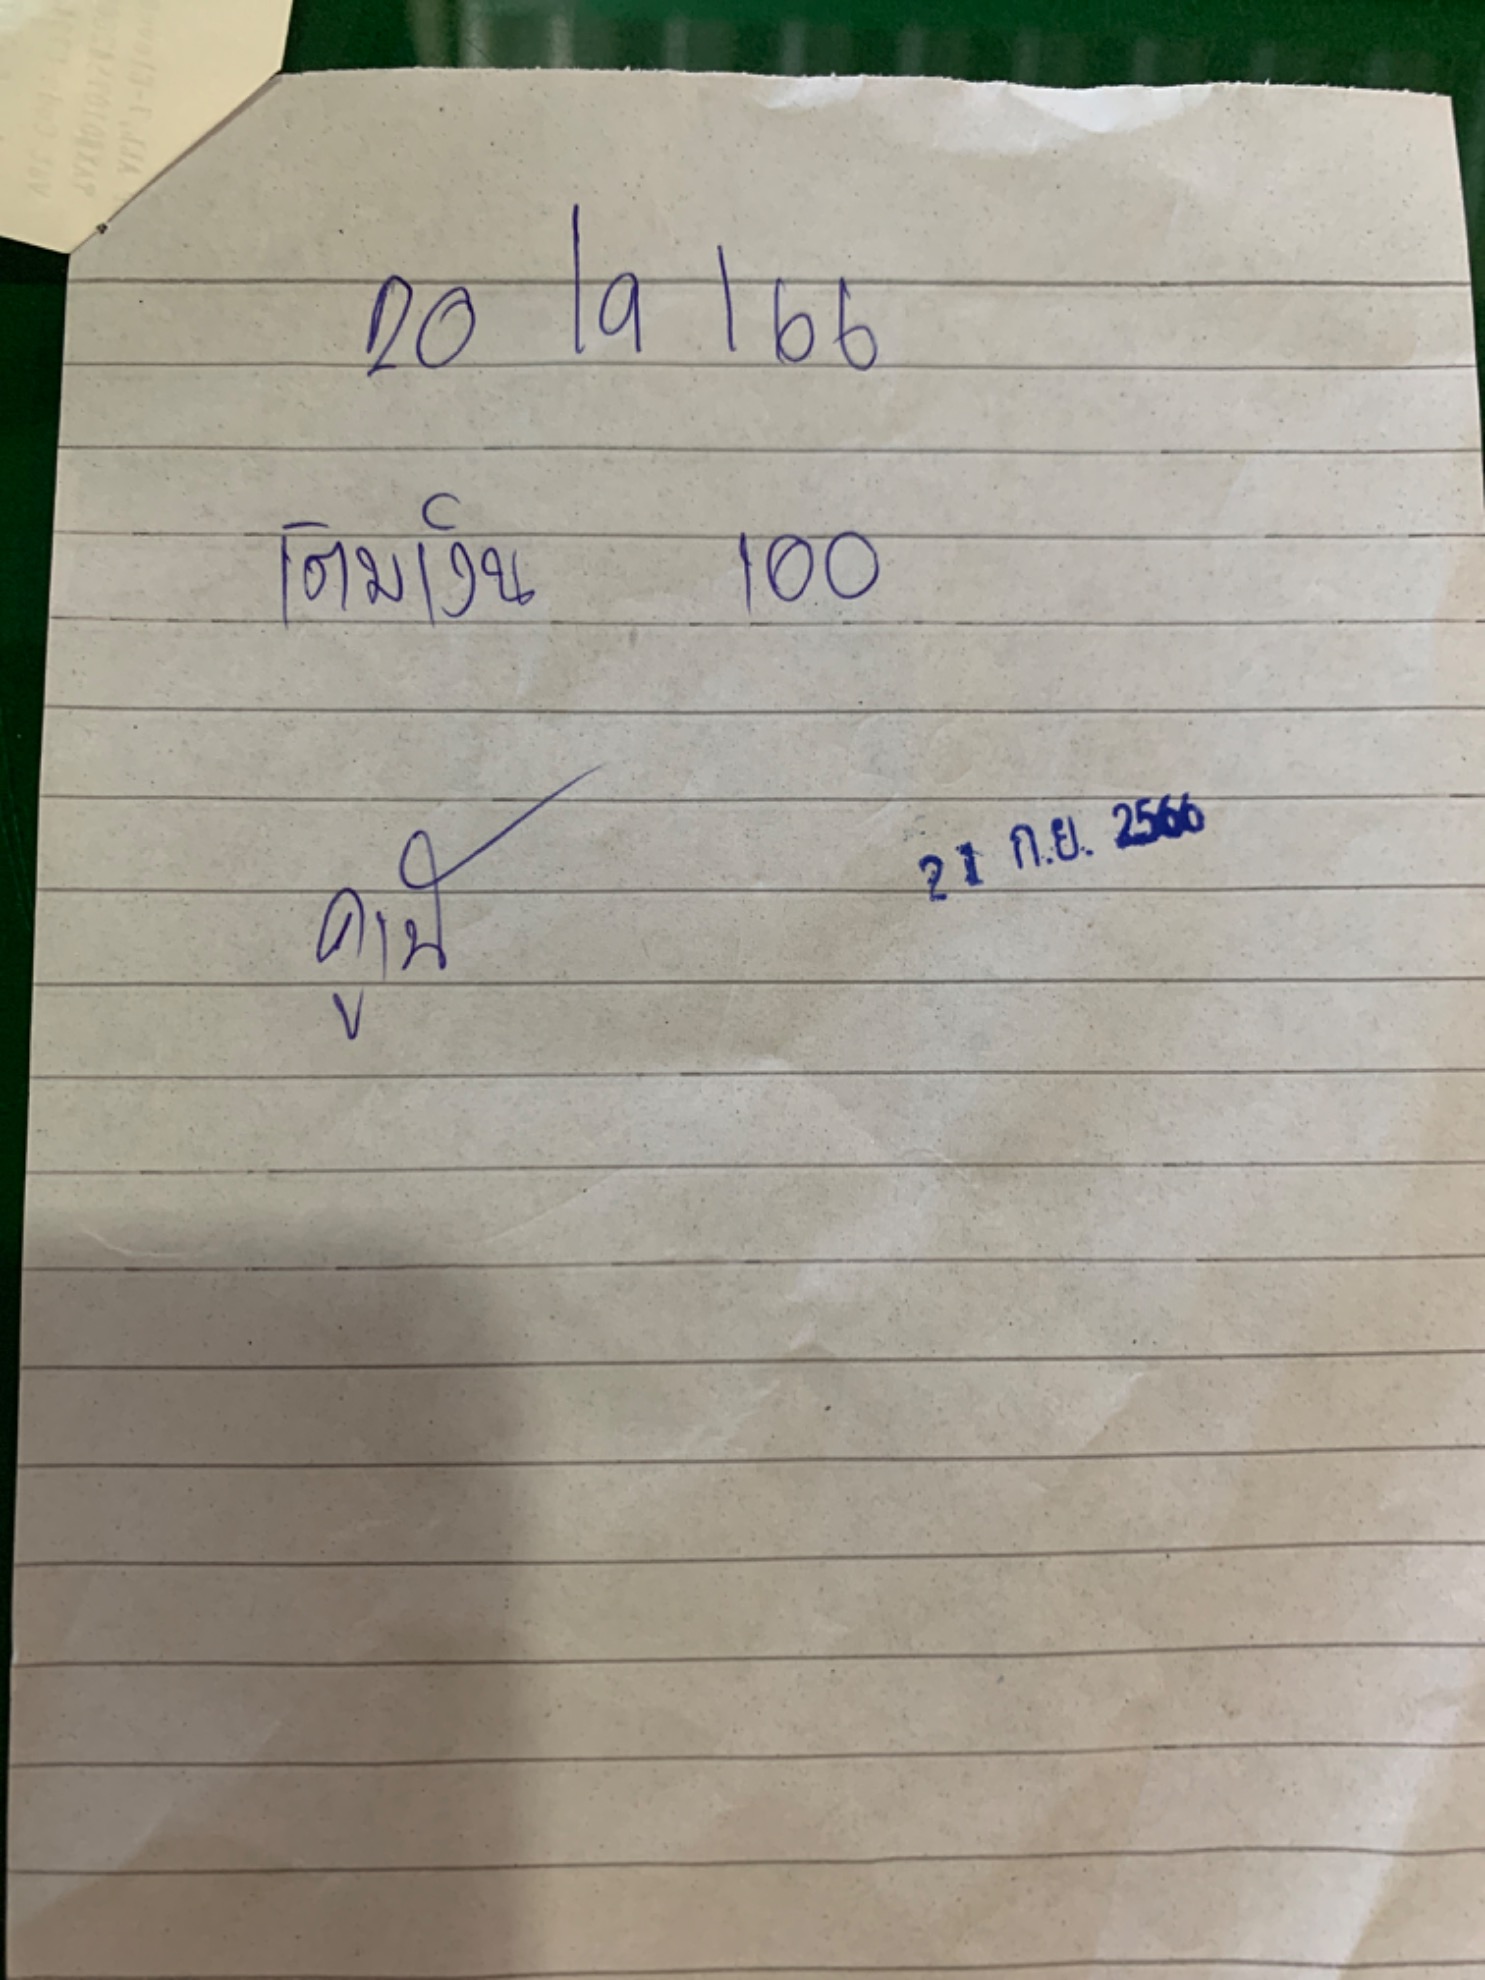 20/9/66
เติมเงิน 100
21 ก.ย. 2566